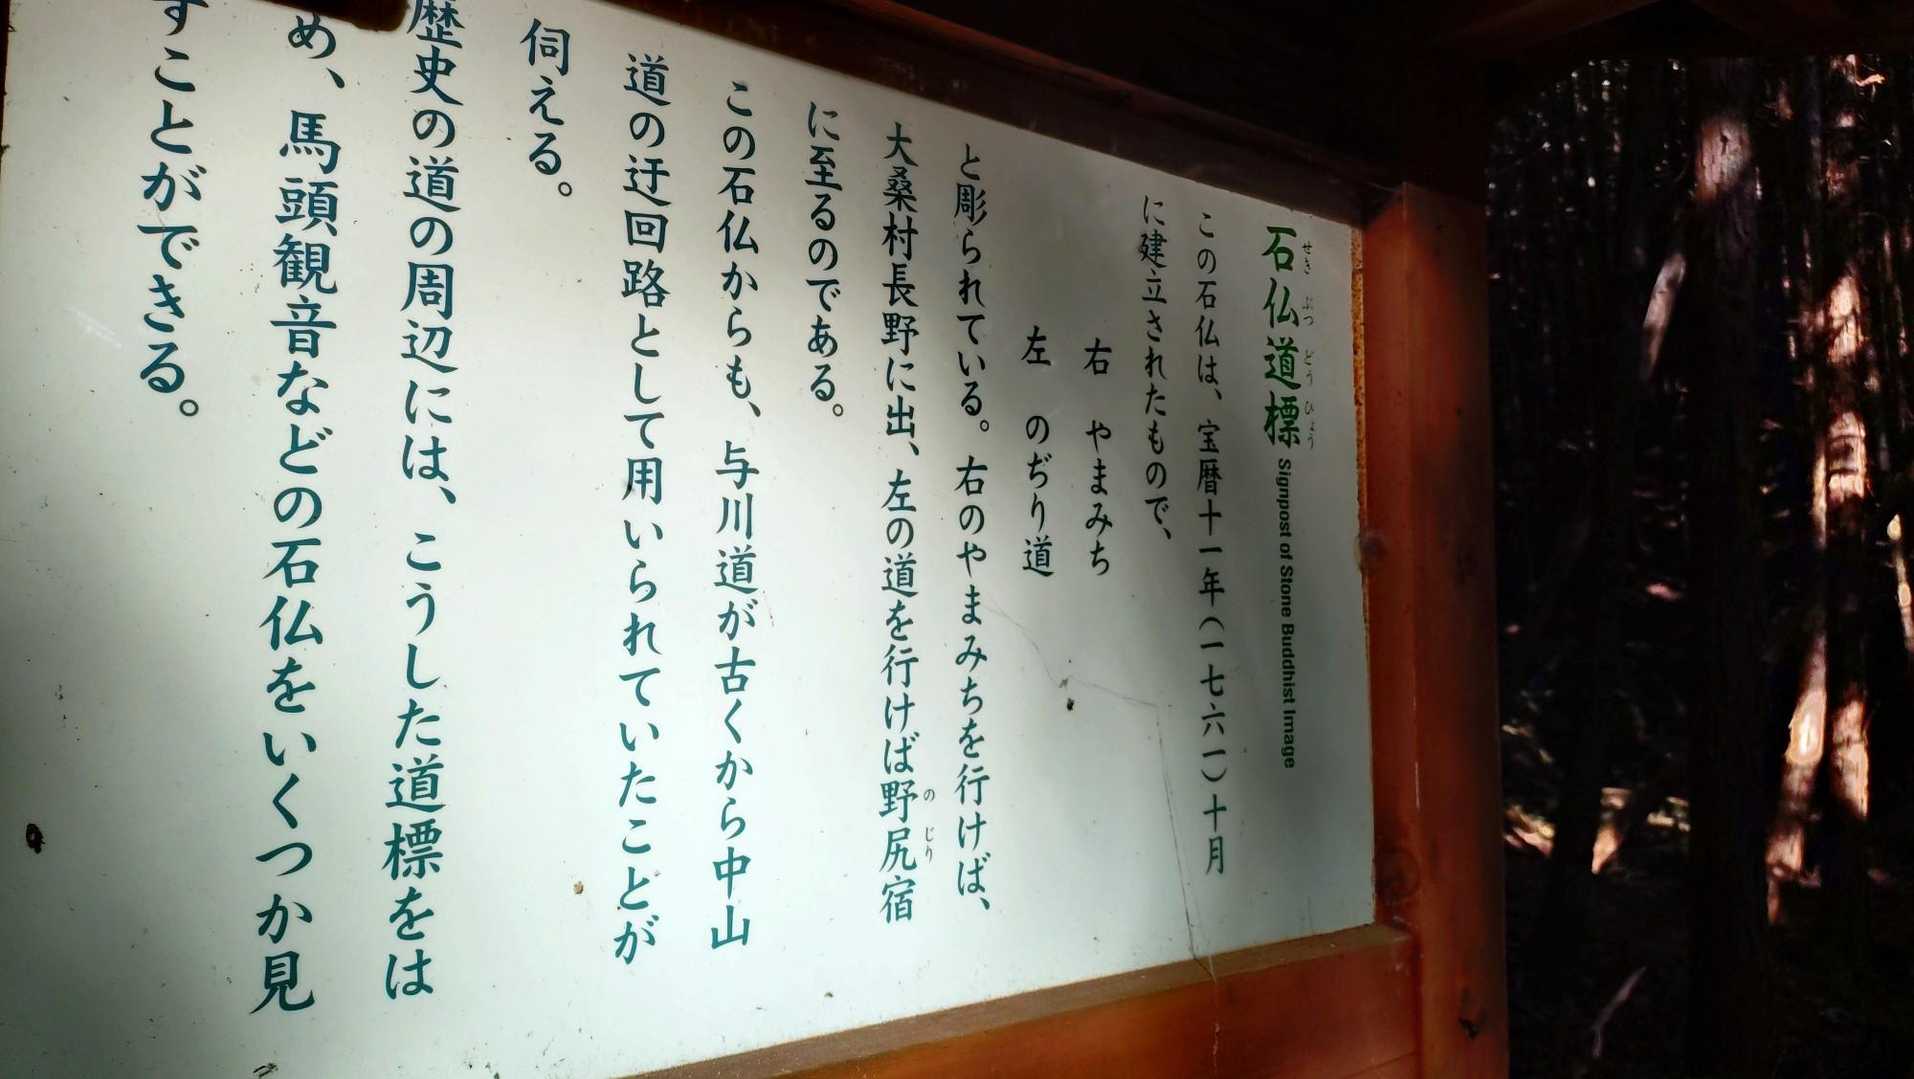 石仏道標 Signpost of Stone Buddhist Image
せき ぶつ どう ひょう
この石仏は、宝暦十一年（一七六一）十月
に建立されたもので、
右 やまみち
左 のぢり道
と彫られている。右のやまみちを行けば、
大桑村長野に出、左の道を行けば野尻宿
のじり
に至るのである。
この石仏からも、与川道が古くから中山
道の迂回路として用いられていたことが
伺える。
歴史の道の周辺には、こうした道標をは
め、馬頭観音などの石仏をいくつか見
すことができる。